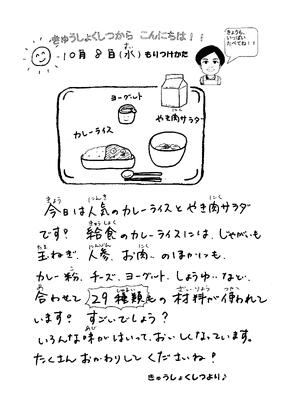 きゅうしょくしつから こんにちは!!
10月 8日(水) もりつけかた
きょうも、
いっぱい
たべてね!!
ヨーグルト
やき肉サラダ
カレーライス
今日は人気のカレーライスとやき肉サラダ
です? 給食のカレーライスには、じゃがいも
玉ねぎ、人参、お肉…のほかにも、
カレー粉、チーズ、ヨーグルト、しょうゆ…など…
合わせて 29種類もの材料が使われて
います? すごいでしょう?
いろんな味がはいって、おいしくなっています。
たくさんおかわりしてくださいね!
きゅうしょくしつより♪